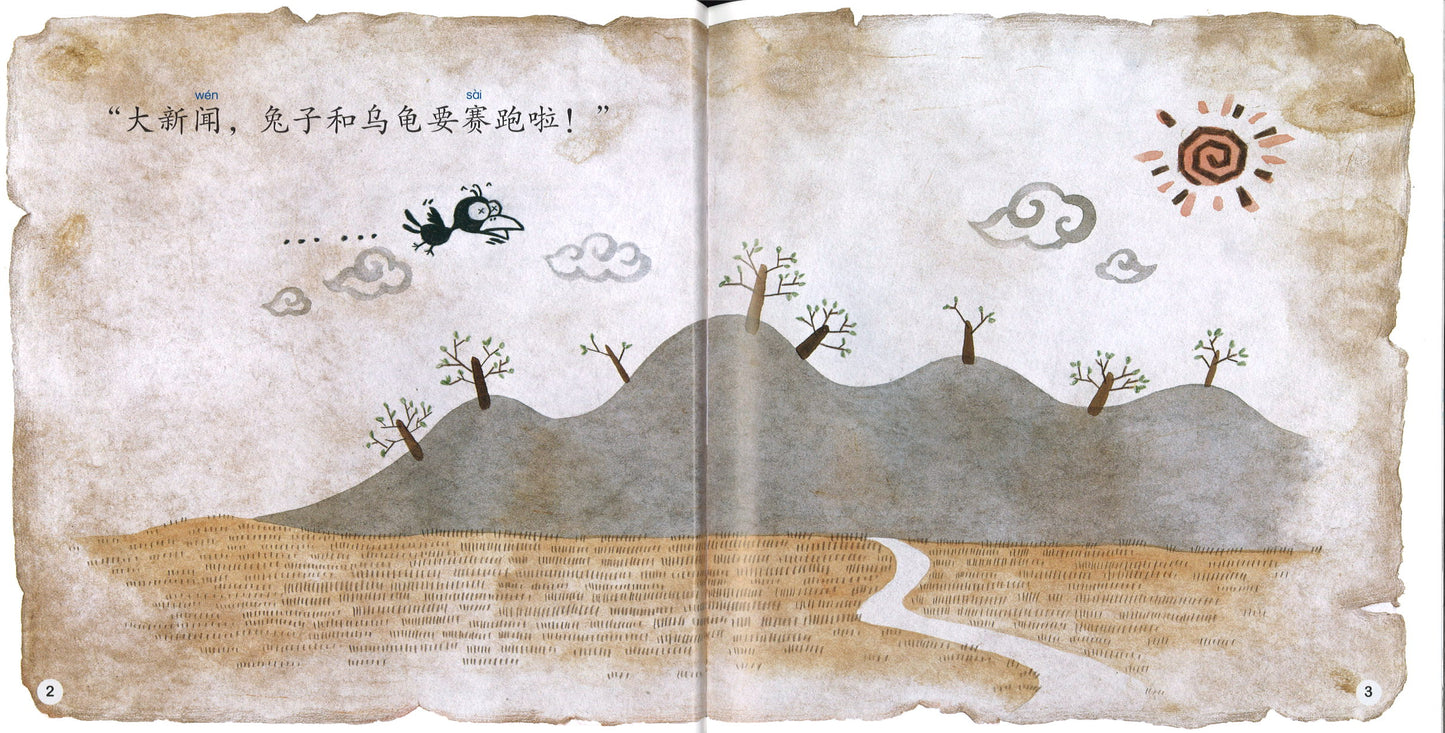 wén sài
“大新闻，兔子和乌龟要赛跑啦！”
2
3